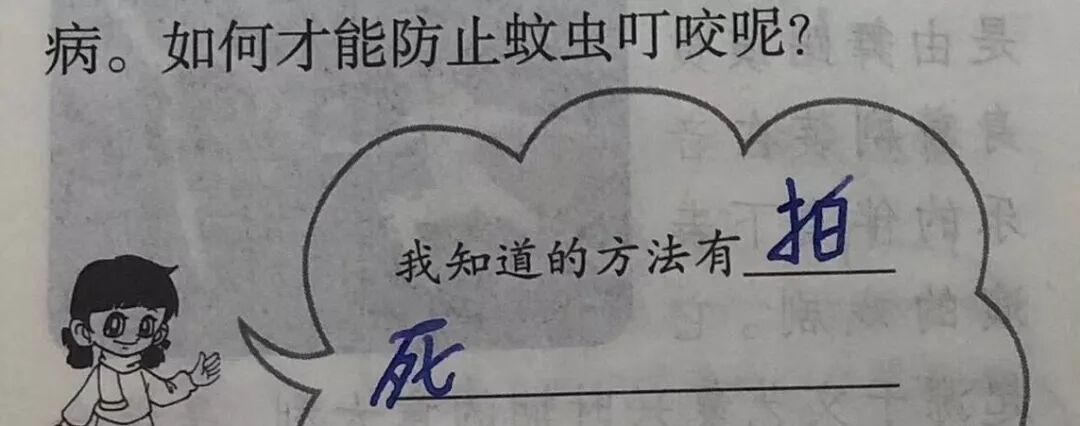 病。如何才能防止蚊虫叮咬呢?
我知道的方法有拍
死